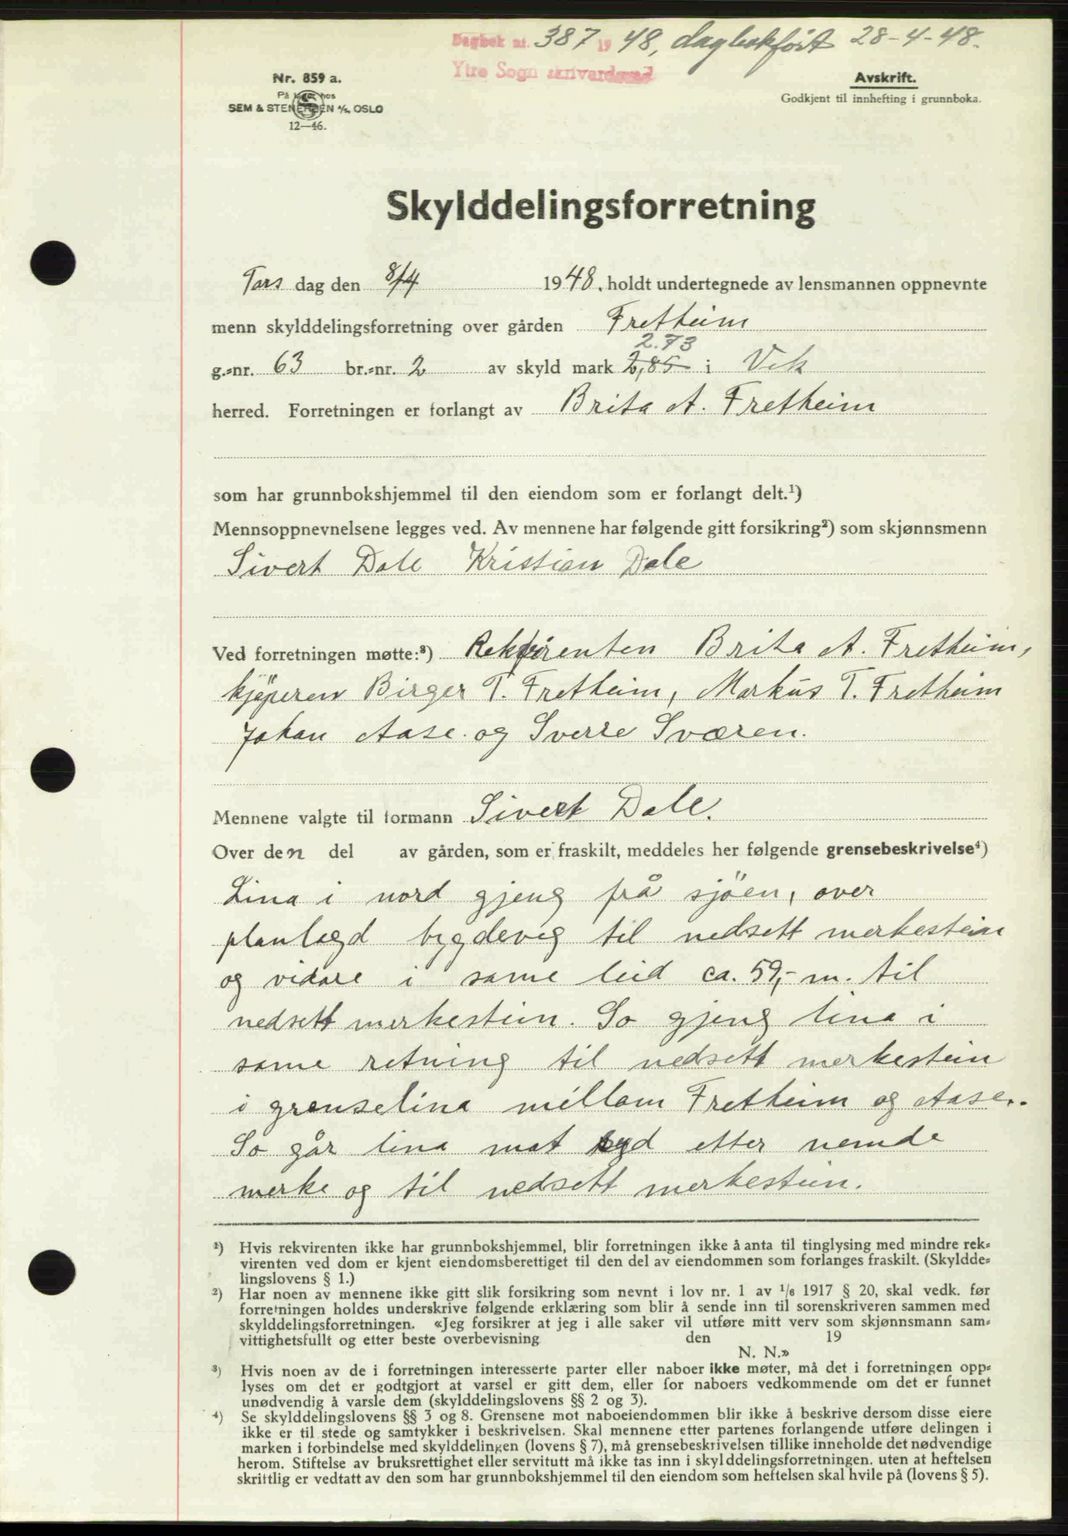 Dagbok nr. 387 1948, dagbokført 28-4-48.
Ytre Sogn
Nr. 859 a.
På lager hos
SEM & STENERSEN A/S, OSLO
12—46.
Avskrift.
Godkjent til innhefting i grunnboka.
Skylddelingsforretning
Tors dag den 8/4 1948, holdt undertegnede av lensmannen oppnevnte
menn skylddelingsforretning over gården Fretheim
2.73
g.-nr. 63 br.-nr. 2 av skyld mark 2,85 i Vik
herred. Forretningen er forlangt av Brita A. Fretheim
som har grunnbokshjemmel til den eiendom som er forlangt delt.¹)
Mennsoppnevnelsene legges ved. Av mennene har følgende gitt forsikring²) som skjønnsmenn
Sivert Dale Kristian Dale
Ved forretningen møtte:³) Rekvirenten Brita A. Fretheim,
kjøperen Birger T. Fretheim, Markus T. Fretheim
Johan Aase og Sverre Sværen.
Mennene valgte til formann Sivert Dale.
Over den del av gården, som er fraskilt, meddeles her følgende grensebeskrivelse⁴)
Lina i nord gjeng frå sjöen, over
planlagd bygdeveg til nedsett merkestein
og vidare i same leid ca. 59,- m. til
nedsett merkestein. So gjeng lina i
same retning til nedsett merkestein
i grenselina millom Fretheim og Aase.
So går lina mot syd etter nemde
merke og til nedsett merkestein.
¹) Hvis rekvirenten ikke har grunnbokshjemmel, blir forretningen ikke å anta til tinglysing med mindre rek-
virenten ved dom er kjent eiendomsberettiget til den del av eiendommen som forlanges fraskilt. (Skyldde-
lingslovens § 1.)
²) Har noen av mennene ikke gitt slik forsikring som nevnt i lov nr. 1 av 1/6 1917 § 20, skal vedk. før
forretningen holdes underskrive følgende erklæring som blir å sende inn til sorenskriveren sammen med
skylddelingsforretningen. «Jeg forsikrer at jeg i alle saker vil utføre mitt verv som skjønnsmann sam-
vittighetsfullt og etter beste overbevisning den 19
N. N.»
³) Hvis noen av de i forretningen interesserte parter eller naboer ikke møter, må det i forretningen opp-
lyses om det er godtgjort at varsel er gitt dem, eller for naboers vedkommende om det er funnet
unødvendig å varsle dem (skylddelingslovens §§ 2 og 3).
⁴) Se skylddelingslovens §§ 3 og 8. Grensene mot naboeiendommen blir ikke å beskrive dersom disse eiere
ikke er til stede og samtykker i beskrivelsen. Skal mennene etter partenes forlangende utføre delingen i
marken i forbindelse med skylddelingen (lovens § 7), må grensebeskrivelsen tillike inneholde det nødvendige
herom. Stiftelse av bruksrettighet eller servitutt må ikke tas inn i skylddelingsforretningen, uten at heftelsen
skriftlig er vedtatt av den som har grunnbokshjemmel til den eiendom som heftelsen skal hvile på (lovens § 5).